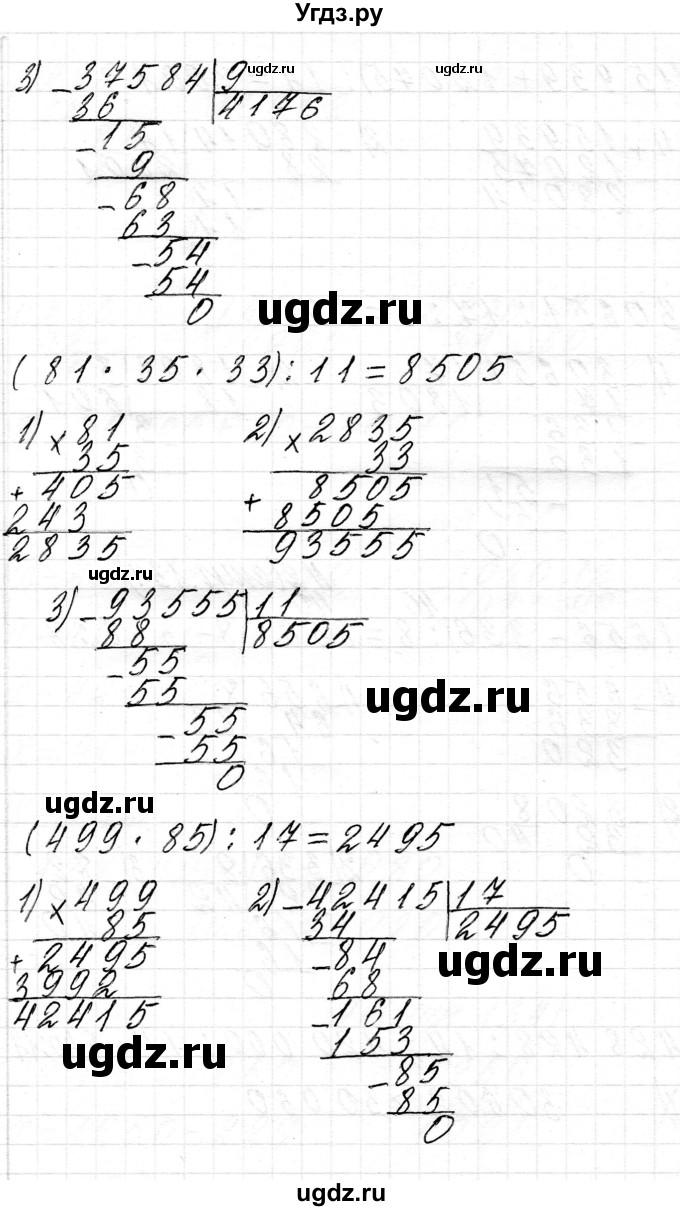 Угдз.ру
3) - 37584 | 9
ugdz.ru
ugdz.ru
36
4176
- 15
9
- 68
63
- 54
54
0
ugdz.ru
(81 · 35 · 33) : 11 = 8505
1) × 81
35
+ 405
243
2835
2) × 2835
33
+ 8505
8505
93555
ugdz.ru
3) - 93555 | 11
88
8505
- 55
55
ugdz.ru
- 55
55
0
ugdz.ru
(499 · 85) : 17 = 2495
1) × 499
85
+ 2495
3992
42415
ugdz.ru
2) - 42415 | 17
34
2495
- 84
ugdz.ru
68
- 161
153
- 85
85
0
ugdz.ru